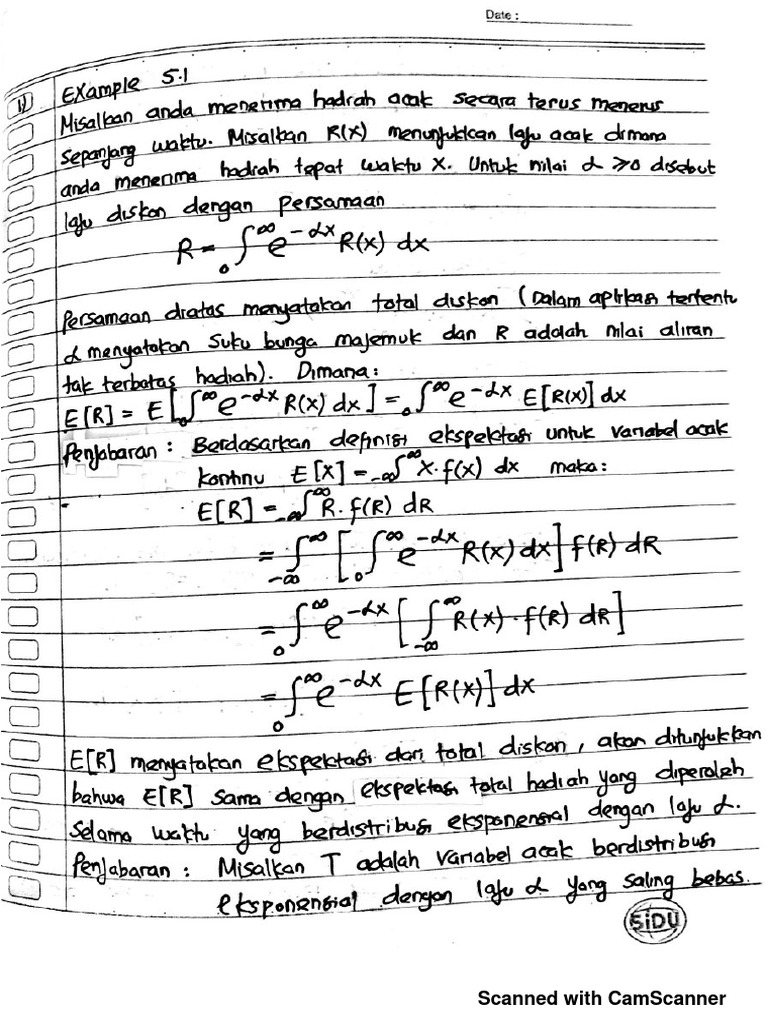 Date :
1) Example 5.1
Misalkan anda menerima hadiah acak secara terus menerus
sepanjang waktu. Misalkan R(x) menunjukkan laju acak dimana
anda menerima hadiah tepat waktu x. Untuk nilai α ≥ 0 disebut
laju diskon dengan persamaan
R = ₀∫^∞ e^{-αx} R(x) dx
Persamaan diatas menyatakan total diskon (Dalam aplikasi tertentu
α menyatakan suku bunga majemuk dan R adalah nilai aliran
tak terbatas hadiah). Dimana:
E[R] = E[₀∫^∞ e^{-αx} R(x) dx] = ₀∫^∞ e^{-αx} E[R(x)] dx
Penjabaran : Berdasarkan definisi ekspektasi untuk variabel acak
kontinu E[X] = -∞∫^∞ X.f(x) dx maka:
E[R] = -∞∫^∞ R.f(R) dR
= -∞∫^∞ [₀∫^∞ e^{-αx} R(x) dx] f(R) dR
= ₀∫^∞ e^{-αx} [-∞∫^∞ R(x).f(R) dR]
= ₀∫^∞ e^{-αx} E[R(x)] dx
E[R] menyatakan ekspektasi dari total diskon, akan ditunjukkan
bahwa E[R] sama dengan ekspektasi total hadiah yang diperoleh
selama waktu yang berdistribusi eksponensial dengan laju α.
Penjabaran : Misalkan T adalah variabel acak berdistribusi
eksponensial dengan laju α yang saling bebas.
SiDU
Scanned with CamScanner